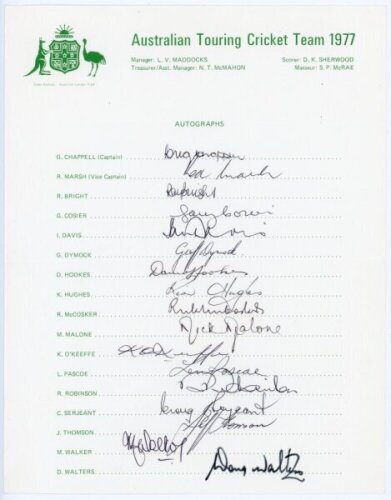 Australian Touring Cricket Team 1977
Manager: L. V. MADDOCKS Scorer: D. K. SHERWOOD
Treasurer/Asst. Manager: N. T. McMAHON Masseur: S. P. McRAE
AUTOGRAPHS
G. CHAPPELL (Captain) Greg Chappell
R. MARSH (Vice Captain) Rod Marsh
R. BRIGHT R Bright
G. COSIER Gary Cosier
I. DAVIS Ian Davis
G. DYMOCK Geoff Dymock
D. HOOKES David Hookes
K. HUGHES Kim Hughes
R. McCOSKER
M. MALONE Mick Malone
K. O'KEEFFE K O'Keeffe
L. PASCOE Len Pascoe
R. ROBINSON R Robinson
C. SERJEANT Craig Serjeant
J. THOMSON Jeff Thomson
M. WALKER M Walker
D. WALTERS Doug Walters